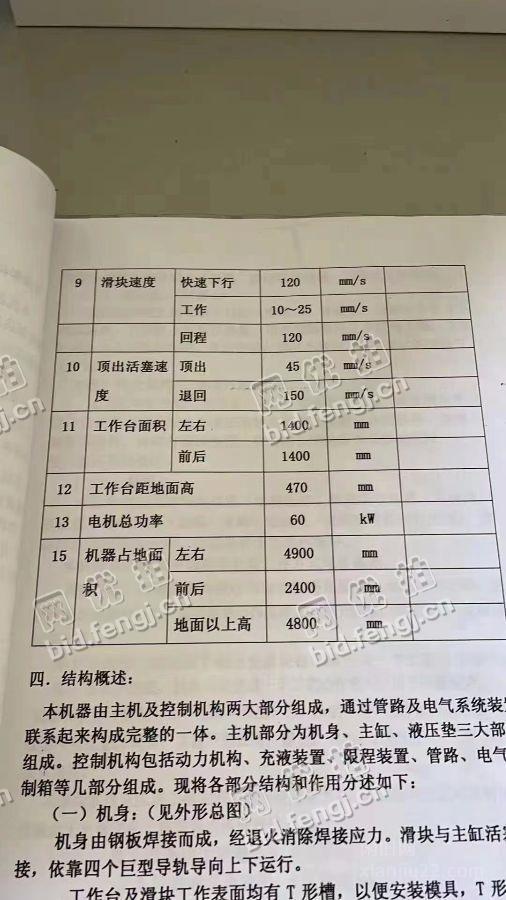 9 滑块速度 快速下行 120 mm/s
工作 10～25 mm/s
回程 120 mm/s
10 顶出活塞速 顶出 45 mm/s
度 退回 150 mm/s
11 工作台面积 左右 1400 mm
前后 1400 mm
12 工作台距地面高 470 mm
13 电机总功率 60 kW
15 机器占地面 左右 4900 mm
积 前后 2400 mm
地面以上高 4800 mm
四．结构概述：
本机器由主机及控制机构两大部分组成，通过管路及电气系统装
联系起来构成完整的一体。主机部分为机身、主缸、液压垫三大部
组成。控制机构包括动力机构、充液装置、限程装置、管路、电气
制箱等几部分组成。现将各部分结构和作用分述如下：
（一）机身：（见外形总图）
机身由钢板焊接而成，经退火消除焊接应力。滑块与主缸活
接，依靠四个巨型导轨导向上下运行。
工作台及滑块工作表面均有 T 形槽，以便安装模具，T 形
网优拍
bid.fengj.cn
网优拍
bid.fengj.cn
网优拍
bid.fengj.cn
网优拍
bid.fengj.cn
网优拍
xianjiu22.com